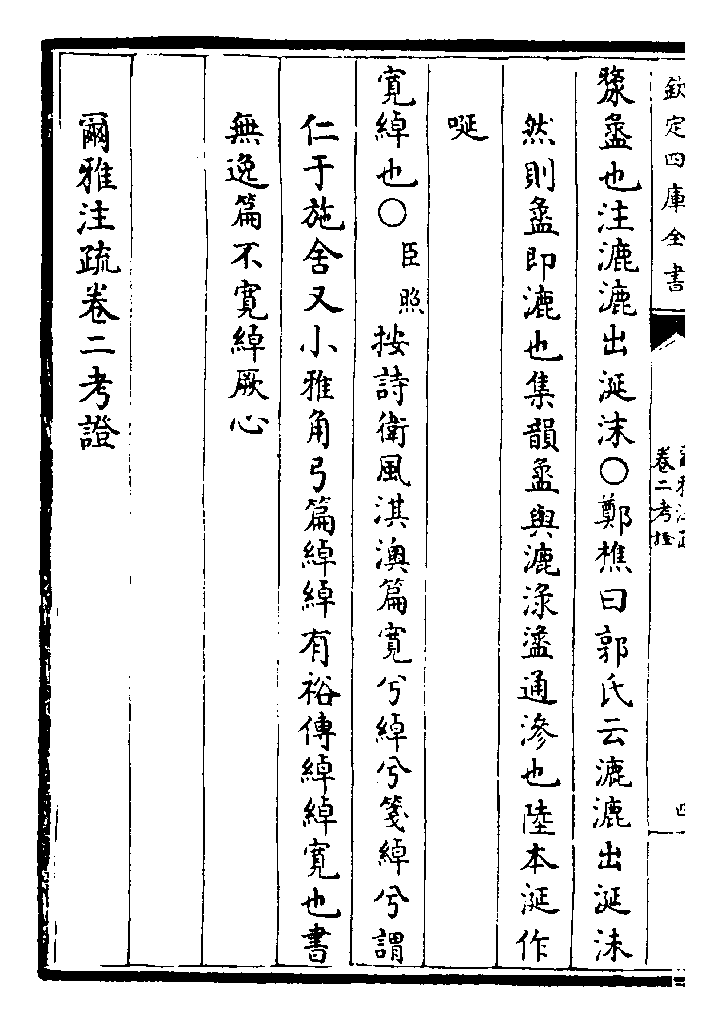 欽定四庫全書
卷二考證
漦盝也注漉漉出涎沫○鄭樵曰郭氏云漉漉出涎沫
然則盝即漉也集韻盝與漉淥通滲也陸本涎作
唌
寛綽也○臣照按詩衛風淇澳篇寛兮綽兮箋綽兮謂
仁于施舍又小雅角弓篇綽綽有裕傳綽綽寛也書
無逸篇不寛綽厥心
爾雅注疏卷二考證